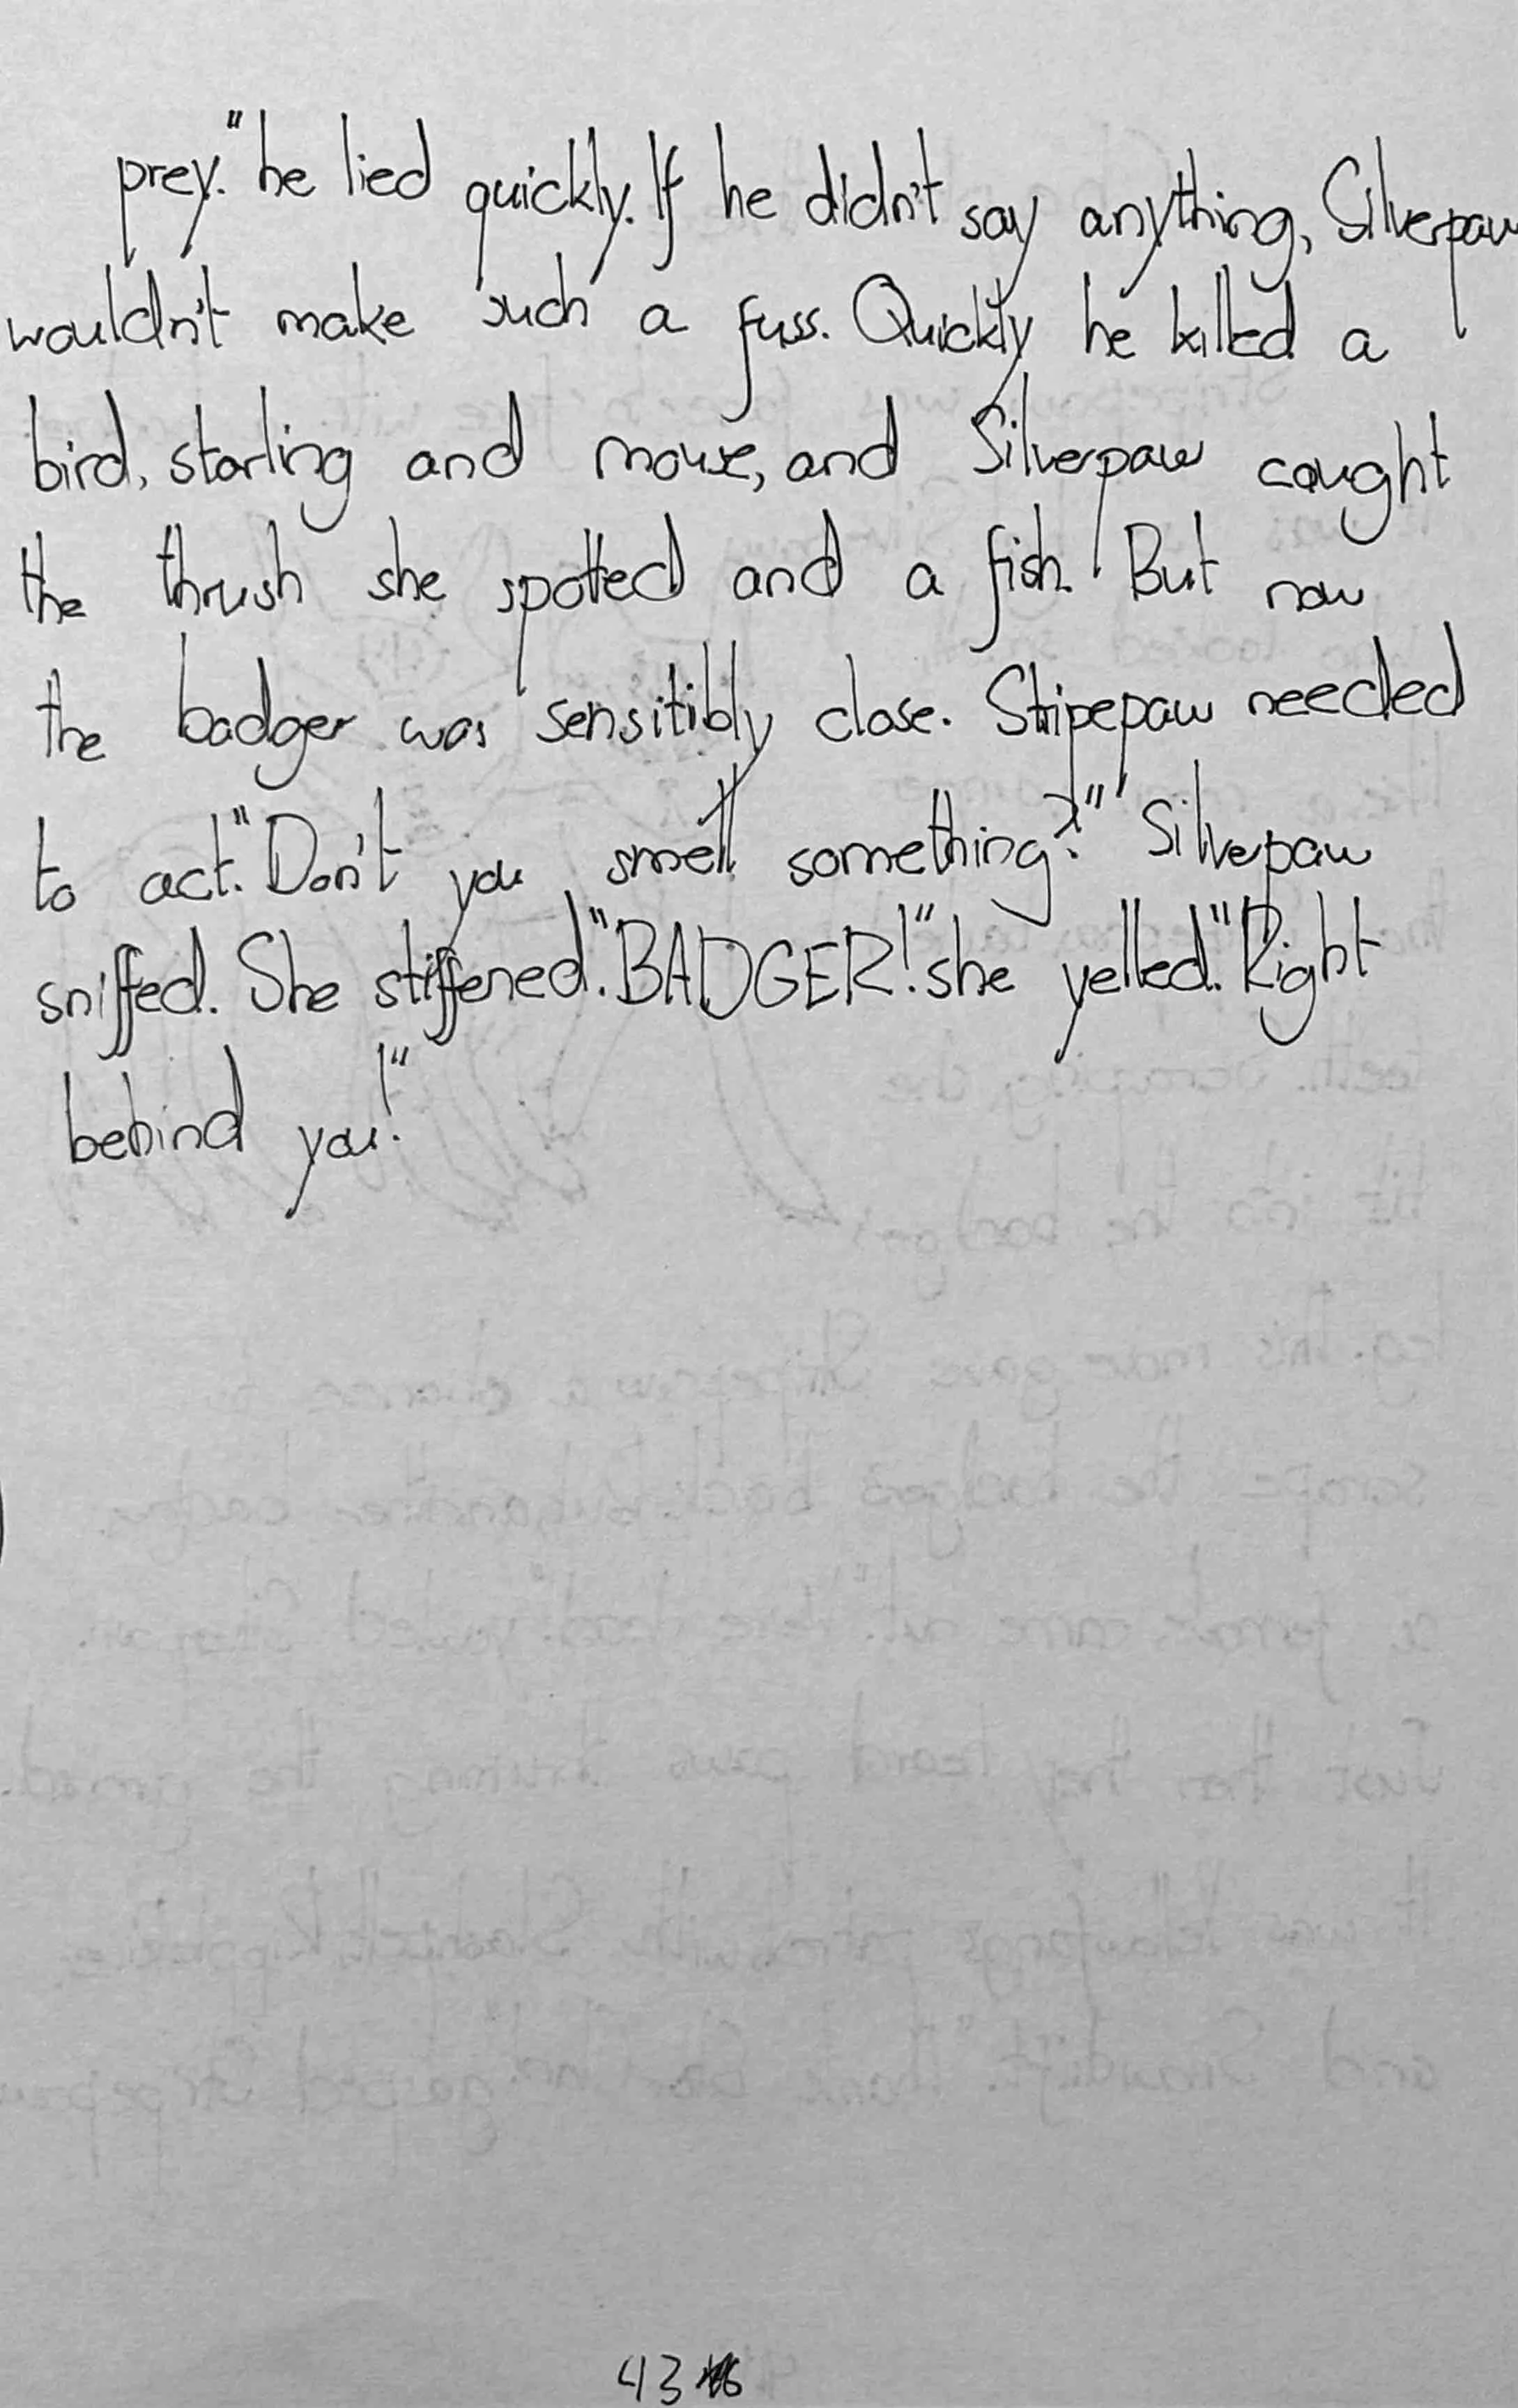 prey." he lied quickly. If he didn't say anything, Silverpaw
wouldn't make such a fuss. Quickly he killed a
bird, starling and mouse, and Silverpaw caught
the thrush she spotted and a fish. But now
the badger was sensitibly close. Stripepaw needed
to act. "Don't you smell something?" Silverpaw
sniffed. She stiffened. "BADGER!" she yelled. "Right
behind you!"
43